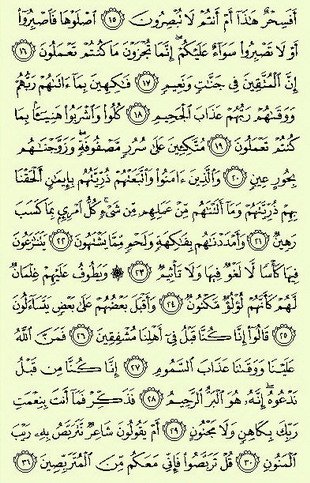 أَفَسِحْرٌ هَٰذَا أَمْ أَنتُمْ لَا تُبْصِرُونَ ١٥ ٱصْلَوْهَا فَٱصْبِرُوٓا۟
أَوْ لَا تَصْبِرُوا۟ سَوَآءٌ عَلَيْكُمْ ۖ إِنَّمَا تُجْزَوْنَ مَا كُنتُمْ تَعْمَلُونَ ١٦
إِنَّ ٱلْمُتَّقِينَ فِى جَنَّٰتٍ وَنَعِيمٍ ١٧ فَٰكِهِينَ بِمَآ ءَاتَىٰهُمْ رَبُّهُمْ
وَوَقَىٰهُمْ رَبُّهُمْ عَذَابَ ٱلْجَحِيمِ ١٨ كُلُوا۟ وَٱشْرَبُوا۟ هَنِيٓـًٔۢا بِمَا
كُنتُمْ تَعْمَلُونَ ١٩ مُتَّكِـِٔينَ عَلَىٰ سُرُرٍ مَّصْفُوفَةٍ ۖ وَزَوَّجْنَٰهُم
بِحُورٍ عِينٍ ٢٠ وَٱلَّذِينَ ءَامَنُوا۟ وَٱتَّبَعَتْهُمْ ذُرِّيَّتُهُم بِإِيمَٰنٍ أَلْحَقْنَا
بِهِمْ ذُرِّيَّتَهُمْ وَمَآ أَلَتْنَٰهُم مِّنْ عَمَلِهِم مِّن شَىْءٍ ۚ كُلُّ ٱمْرِئٍۭ بِمَا كَسَبَ
رَهِينٌ ٢١ وَأَمْدَدْنَٰهُم بِفَٰكِهَةٍ وَلَحْمٍ مِّمَّا يَشْتَهُونَ ٢٢ يَتَنَٰزَعُونَ
فِيهَا كَأْسًا لَّا لَغْوٌ فِيهَا وَلَا تَأْثِيمٌ ٢٣ ۞ وَيَطُوفُ عَلَيْهِمْ غِلْمَانٌ
لَّهُمْ كَأَنَّهُمْ لُؤْلُؤٌ مَّكْنُونٌ ٢٤ وَأَقْبَلَ بَعْضُهُمْ عَلَىٰ بَعْضٍ يَتَسَآءَلُونَ
٢٥ قَالُوٓا۟ إِنَّا كُنَّا قَبْلُ فِىٓ أَهْلِنَا مُشْفِقِينَ ٢٦ فَمَنَّ ٱللَّهُ
عَلَيْنَا وَوَقَىٰنَا عَذَابَ ٱلسَّمُومِ ٢٧ إِنَّا كُنَّا مِن قَبْلُ
نَدْعُوهُ ۖ إِنَّهُۥ هُوَ ٱلْبَرُّ ٱلرَّحِيمُ ٢٨ فَذَكِّرْ فَمَآ أَنتَ بِنِعْمَتِ
رَبِّكَ بِكَاهِنٍ وَلَا مَجْنُونٍ ٢٩ أَمْ يَقُولُونَ شَاعِرٌ نَّتَرَبَّصُ بِهِۦ رَيْبَ
ٱلْمَنُونِ ٣٠ قُلْ تَرَبَّصُوا۟ فَإِنِّى مَعَكُم مِّنَ ٱلْمُتَرَبِّصِينَ ٣١